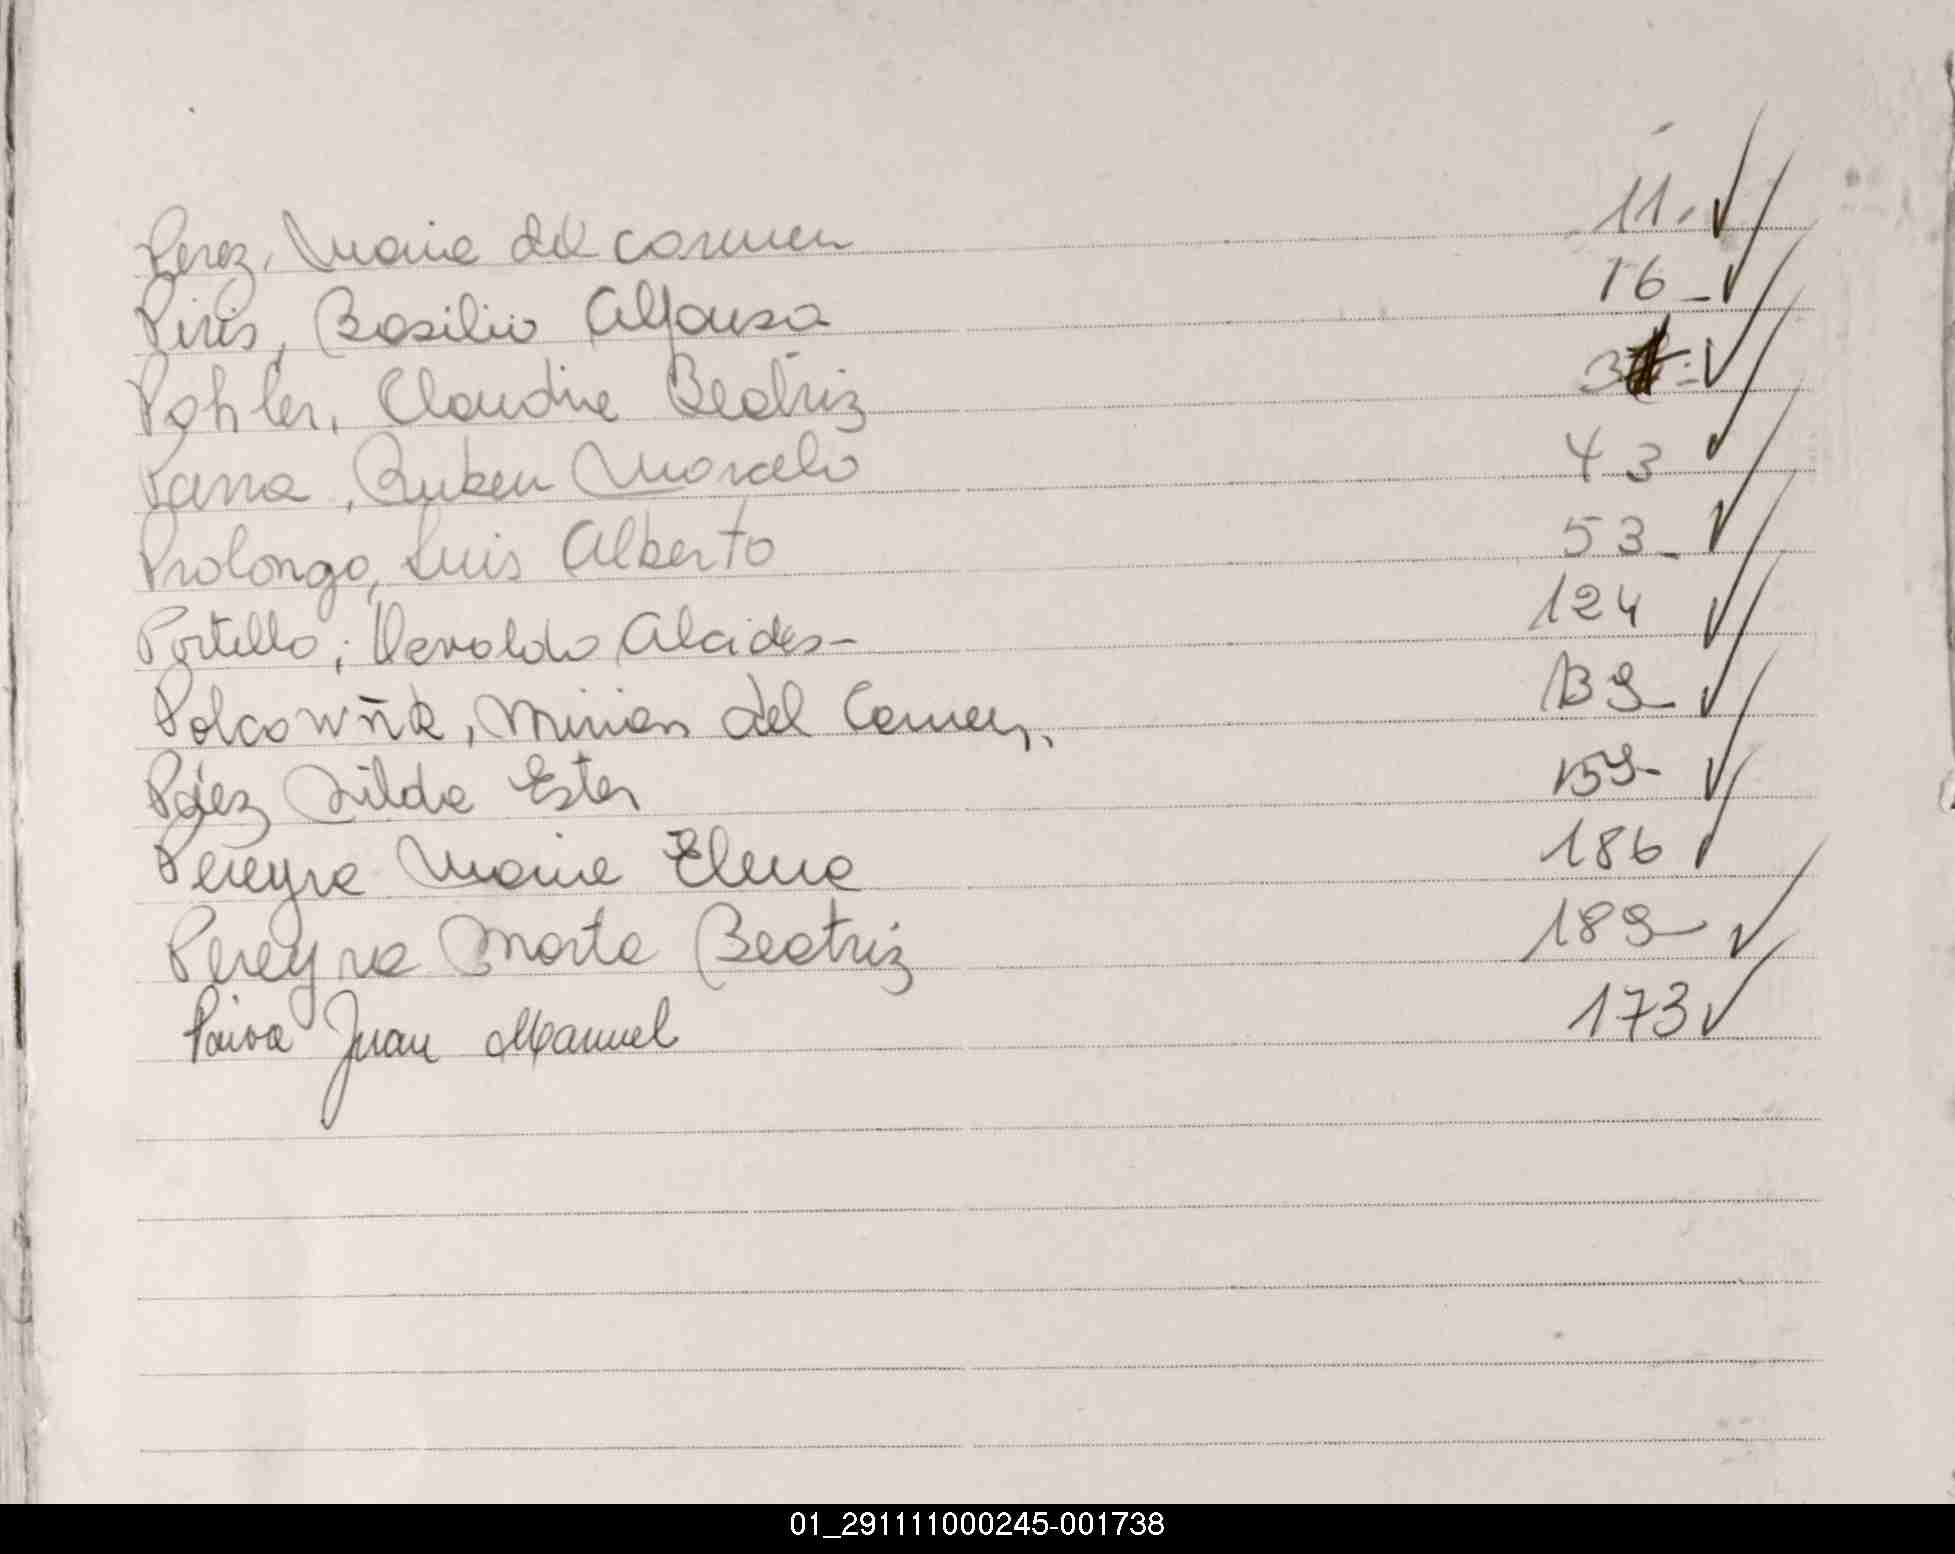 Perez, Maria del Carmen 11.-
Piris, Basilio Alfonso 16-
Pohler, Claudia Beatriz
Parra, Ruben Marcelo 43
Prolongo, Luis Alberto 53-
Portillo, Osvaldo Alcides- 124
Mirian del Carmen. 139-
Páez Nilda Ester 159-
Pereyra Maria Elena 186
Pereyra Marta Beatriz 189-
Paiva Juan Manuel 173
01_291111000245-001738